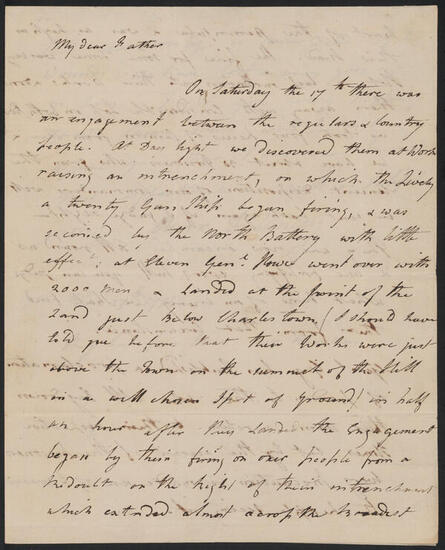 My dear Father
On Saturday the 17th there was
an engagement between the regulars & Country
people. At Day light we discovered them at Work
raising an intrenchment, on which the Lively
a twenty Gun Ship began firing, & was
seconded by the North Battery with little
effect; at Eleven Genl Howe went over with
2000 men & Landed at the point of the
Land just Below Charlestown (I should have
told you before that their Works were just
above the Town on the summet of the Hill
in a well chosen Spot of Ground) in half
an hour after they Landed the Engagement
began by their firing on our people from a
redoubt on the Right of their intrenchment
which extended almost across the broadest